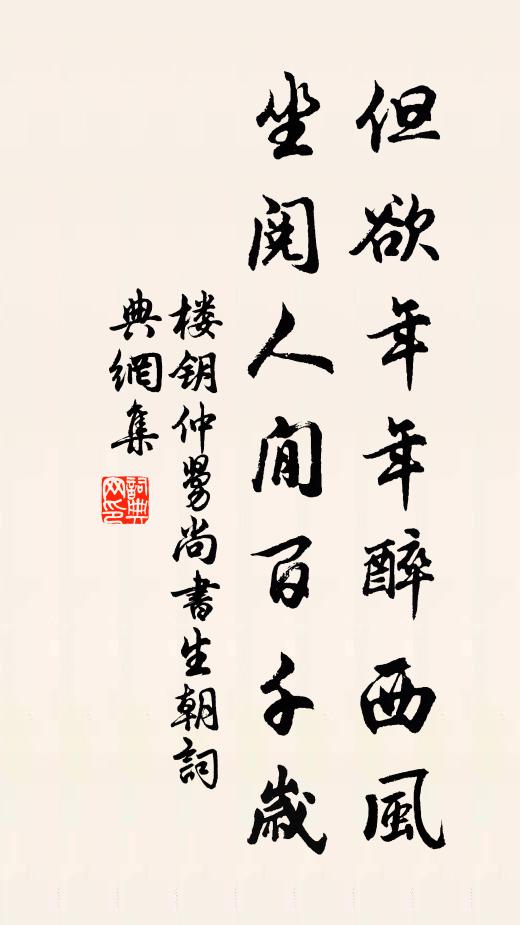 但欲年年醉西風
坐閱人間百千歲
楼鈅仲舅尚書生朝詞
典網集
詞典网印